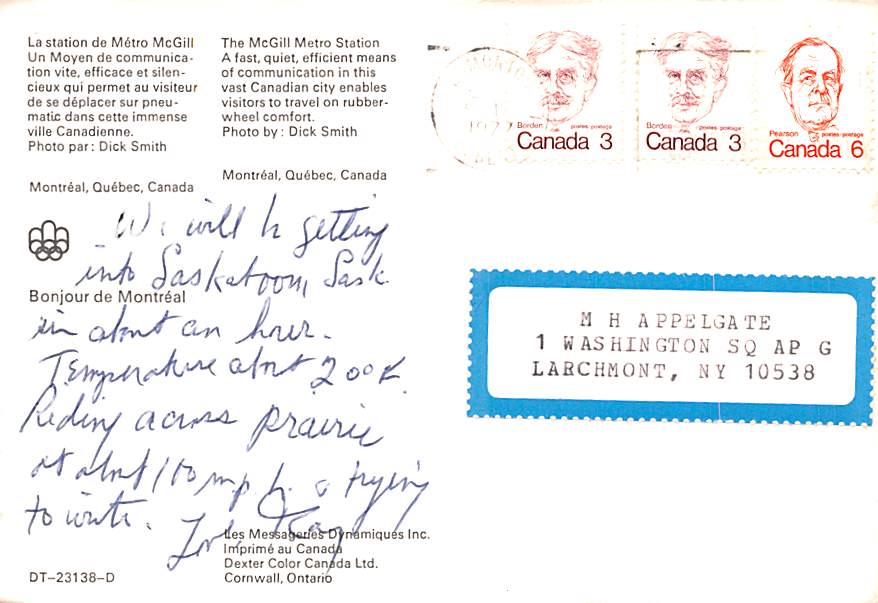 La station de Métro McGill
Un Moyen de communica-
tion vite, efficace et silen-
cieux qui permet au visiteur
de se déplacer sur pneu-
matic dans cette immense
ville Canadienne.
Photo par: Dick Smith
Montréal, Québec, Canada
The McGill Metro Station
A fast, quiet, efficient means
of communication in this
vast Canadian city enables
visitors to travel on rubber-
wheel comfort.
Photo by: Dick Smith
Montréal, Québec, Canada
Borden postes-postage
Canada 3
Borden postes-postage
Canada 3
Pearson postes-postage
Canada 6
We will be getting
into Saskatoon, Sask.
Bonjour de Montréal
in about an hour.
Temperature about
Riding across prairie
at about 100 mph. & trying
to write.
Love
M H APPELGATE
1 WASHINGTON SQ AP G
LARCHMONT, NY 10538
Les Messageries Dynamiques Inc.
Imprimé au Canada
Dexter Color Canada Ltd.
Cornwall, Ontario
DT-23138-D